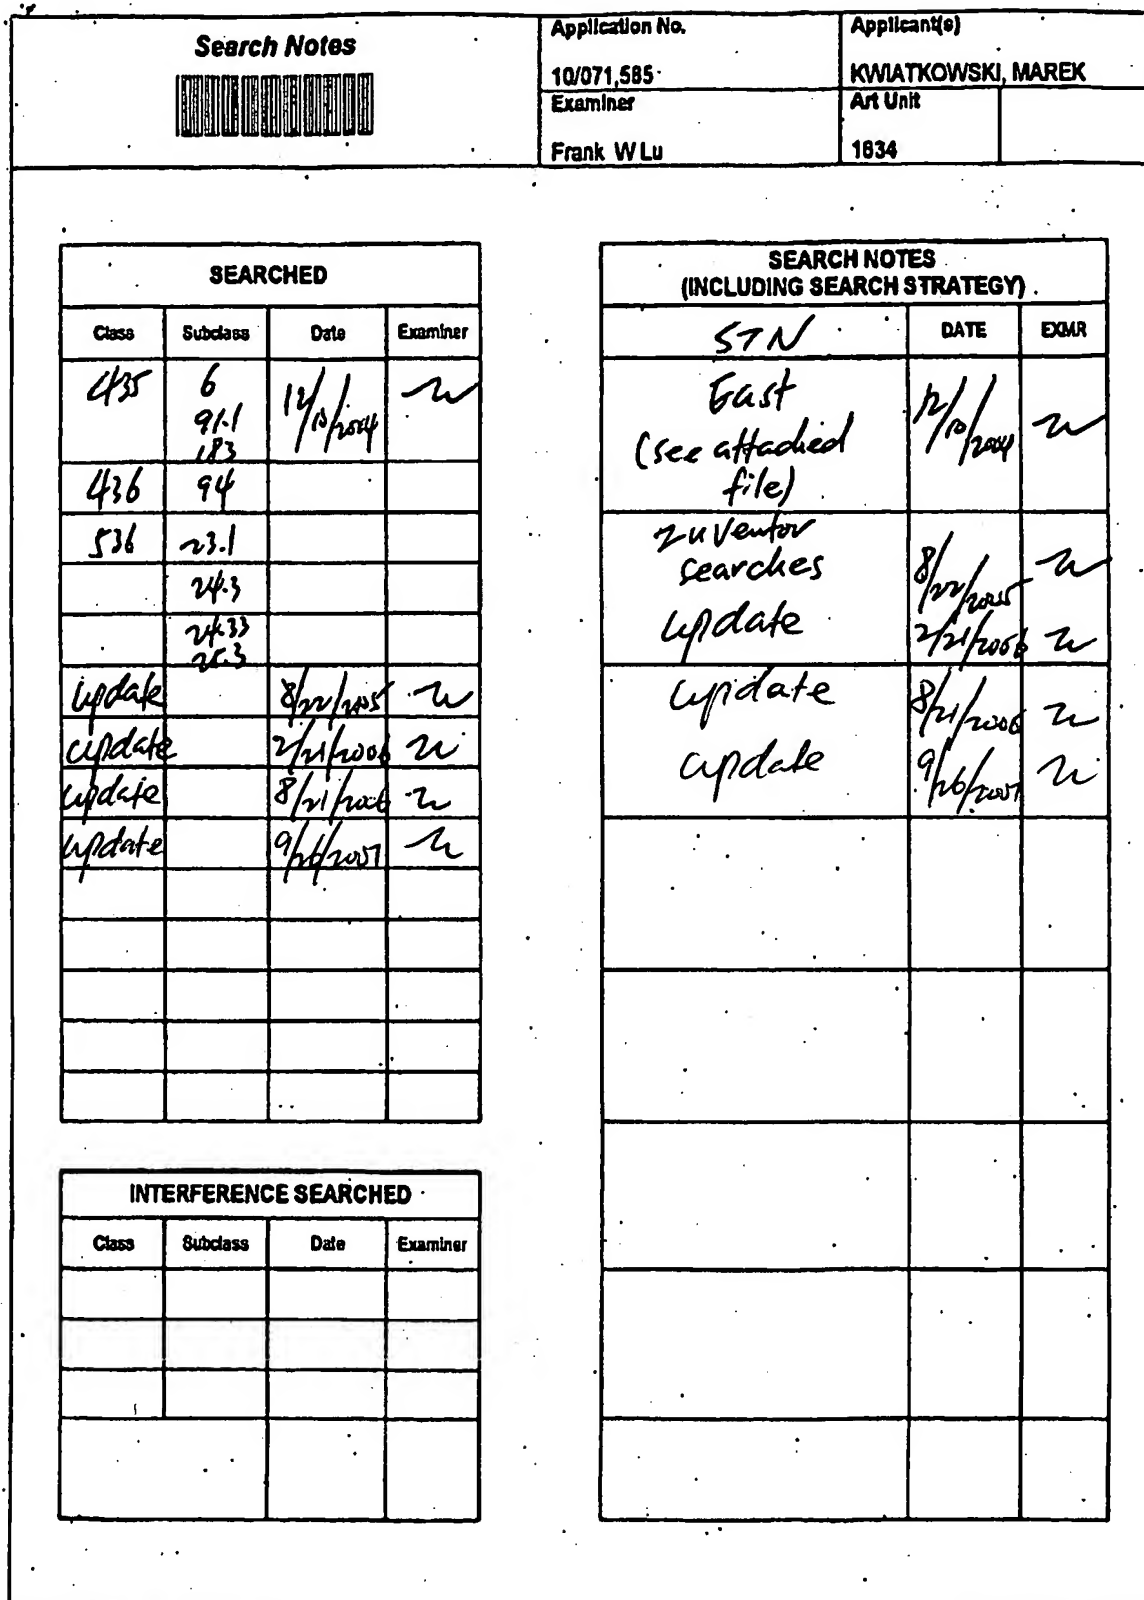 Search Notes
Application No.
10/071,585
Applicant(s)
KWIATKOWSKI, MAREK
Examiner
Frank W Lu
Art Unit
1634
SEARCHED
Class Subclass Date Examiner
435 6 12/10/2004
91.1
183
436 94
536 23.1
24.3
24.33
25.3
update 8/22/2005
update 2/21/2006
update 8/21/2006
update 9/26/2007
INTERFERENCE SEARCHED
Class Subclass Date Examiner
SEARCH NOTES
(INCLUDING SEARCH STRATEGY)
STN DATE EXMR
East 12/10/2004
(see attached
file)
Inventor
searches 8/22/2005
update 2/21/2006
update 8/21/2006
update 9/26/2007